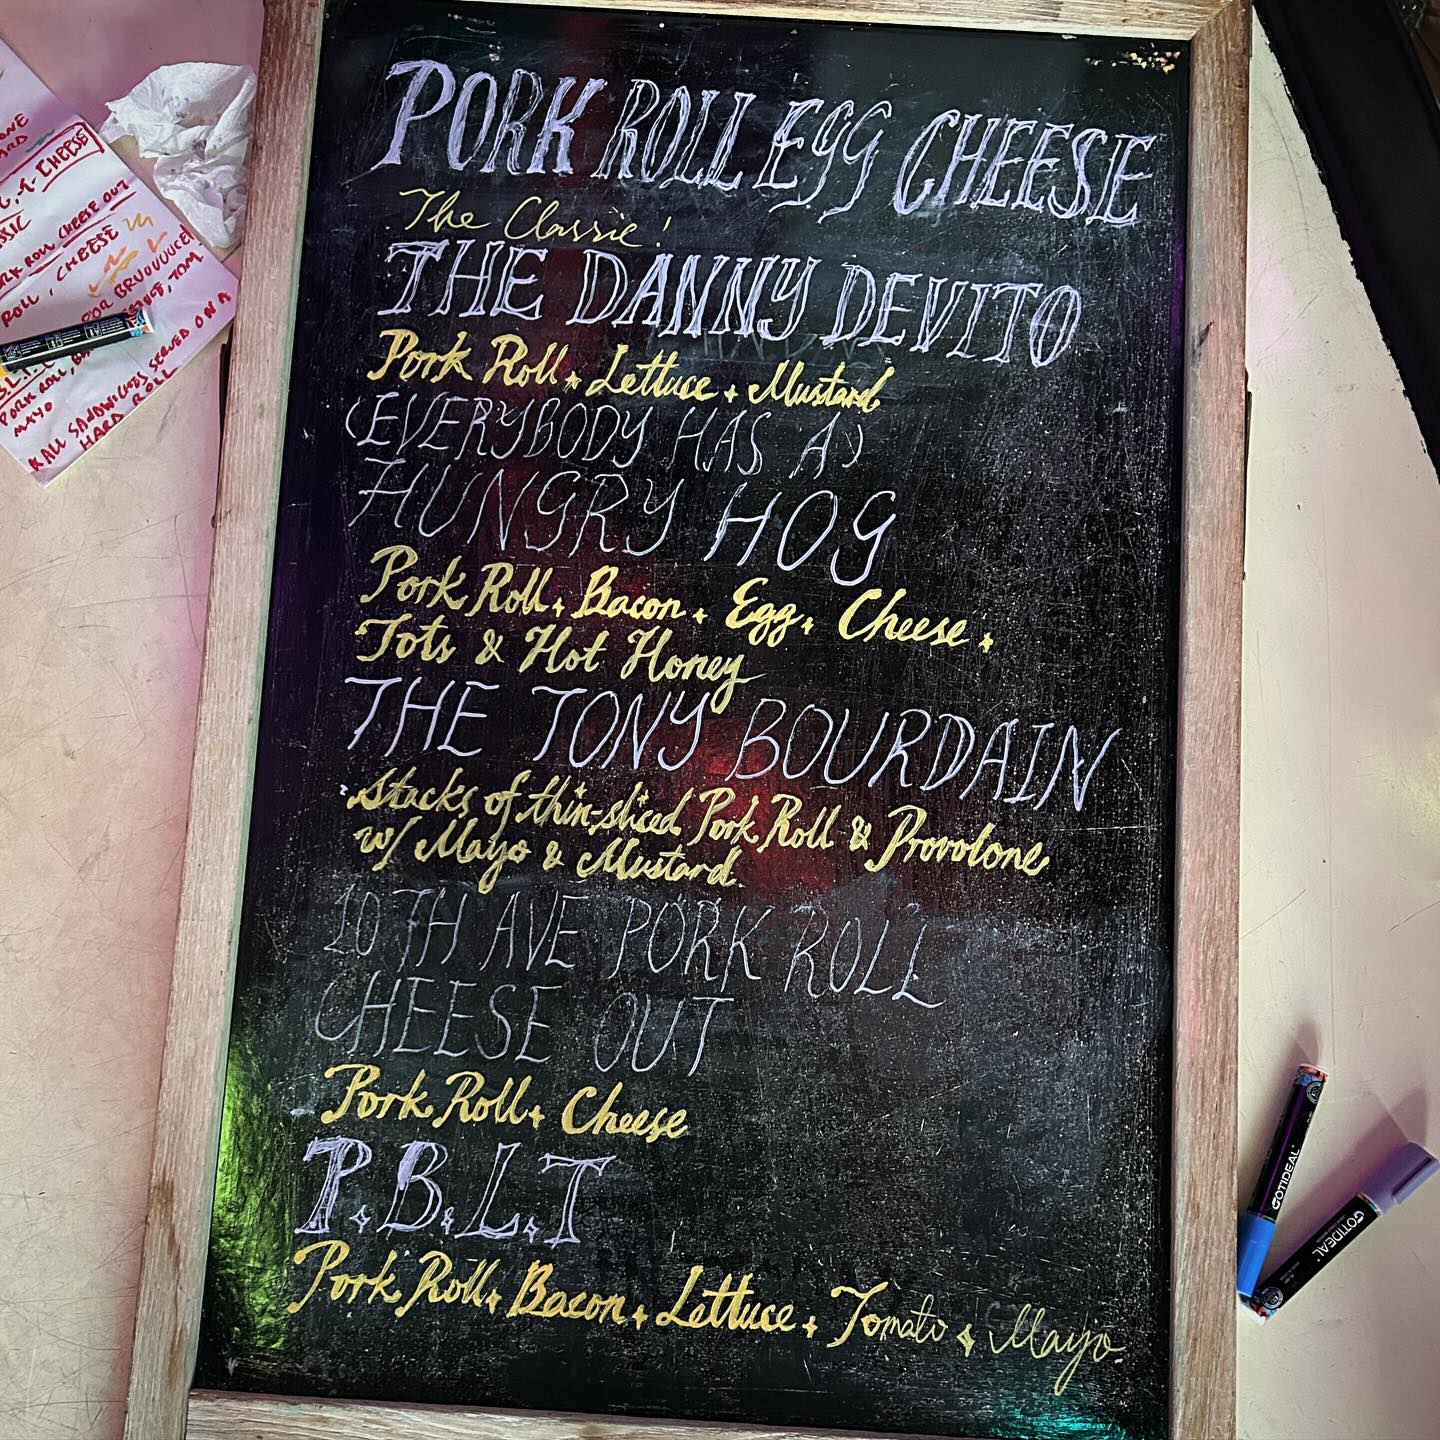 PORK ROLL EGG CHEESE
The Classic!
THE DANNY DEVITO
Pork Roll + Lettuce + Mustard
(EVERYBODY HAS A)
HUNGRY HOG
Pork Roll + Bacon + Egg + Cheese +
Tots & Hot Honey
THE TONY BOURDAIN
Stacks of thin-sliced Pork Roll & Provolone
w/ Mayo & Mustard
10TH AVE PORK ROLL
CHEESE OUT
Pork Roll + Cheese
P.B.L.T
Pork Roll + Bacon + Lettuce + Tomato + Mayo
CHEESE
PORK ROLL CHEESE OUT
ROLL, CHEESE
PORK ROLL,
MAYO
* ALL SANDWICHES SERVED ON A
HARD ROLL
GOTIDEAL
GOTIDEAL